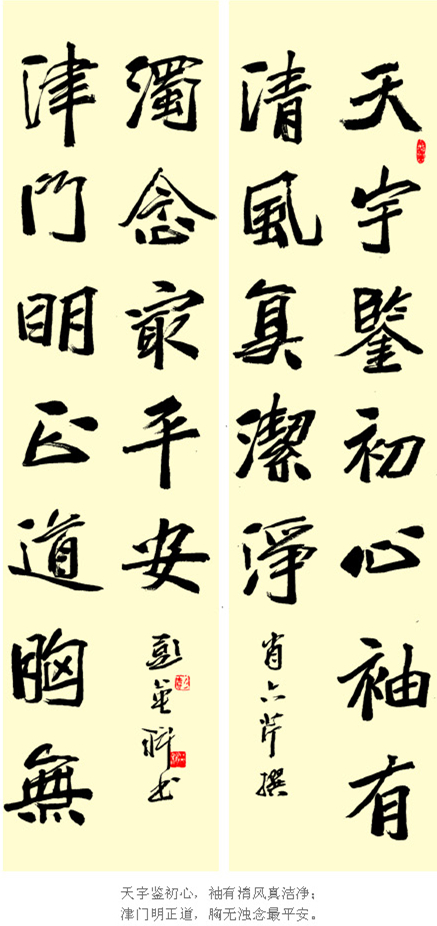 天宇鑒初心袖有
清風真潔淨
肖六芹撰
津門明正道胸無
濁念最平安
彭金书
天宇鉴初心，袖有清风真洁净；
津门明正道，胸无浊念最平安。